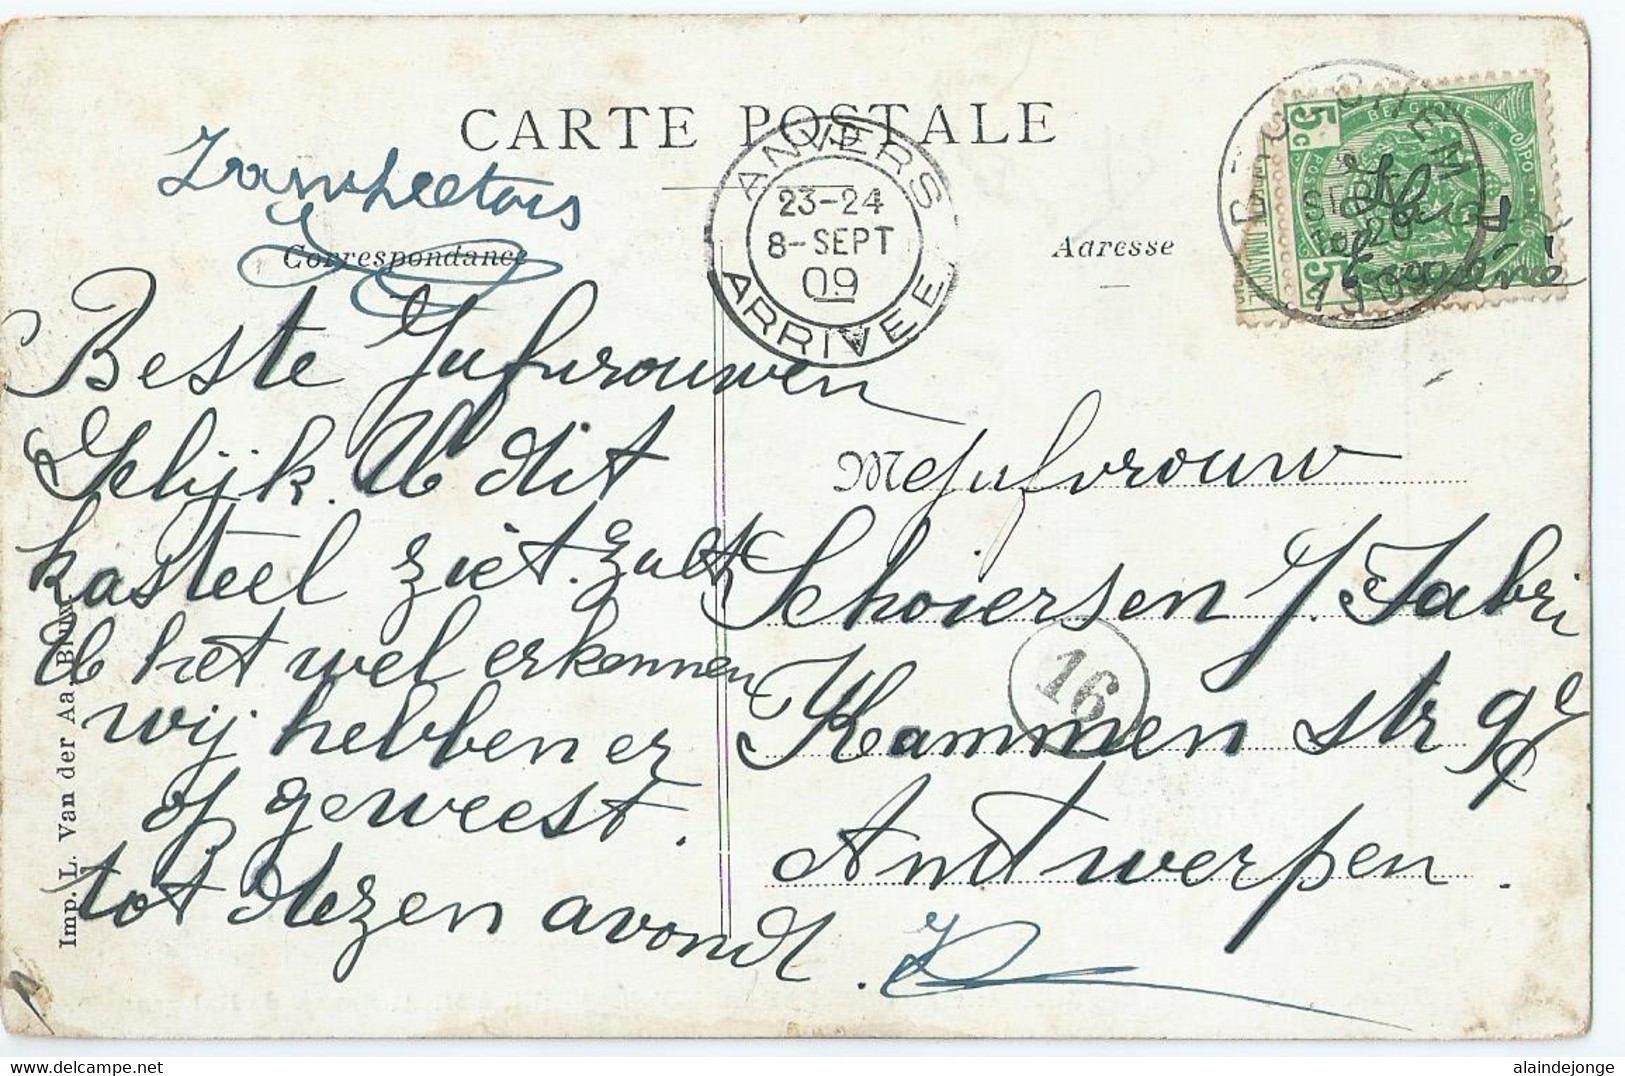 CARTE POSTALE
Correspondance
Adresse
ANVERS
23-24
8-SEPT
09
ARRIVEE
5c
5c
Beste Jufvrouwen
Gelijk U dit
kasteel ziet. zult
U het wel erkennen
wij hebben er
op geweest.
tot dezen avondt.
Mejufvrouw
Schoiersen J. Fabri
Kammen str
Antwerpen.
16
Imp. L. Van der Aa, Brux.
alaindejonge